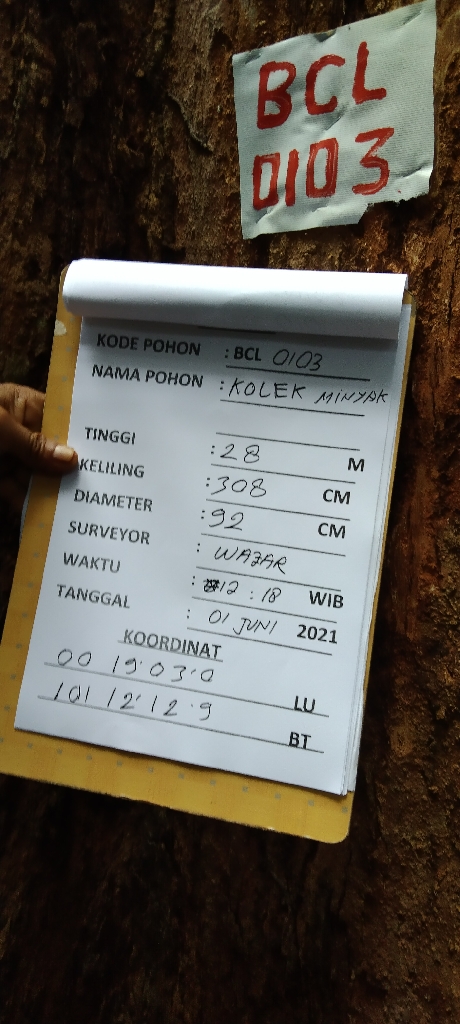 BCL
0103
KODE POHON : BCL 0103
NAMA POHON : KOLEK MINYAK
TINGGI : 28 M
KELILING : 308 CM
DIAMETER : 92 CM
SURVEYOR : WAZAR
WAKTU : 12 : 18 WIB
TANGGAL : 01 JUNI 2021
KOORDINAT
00 19' 03.0 LU
101 12' 12.9 BT